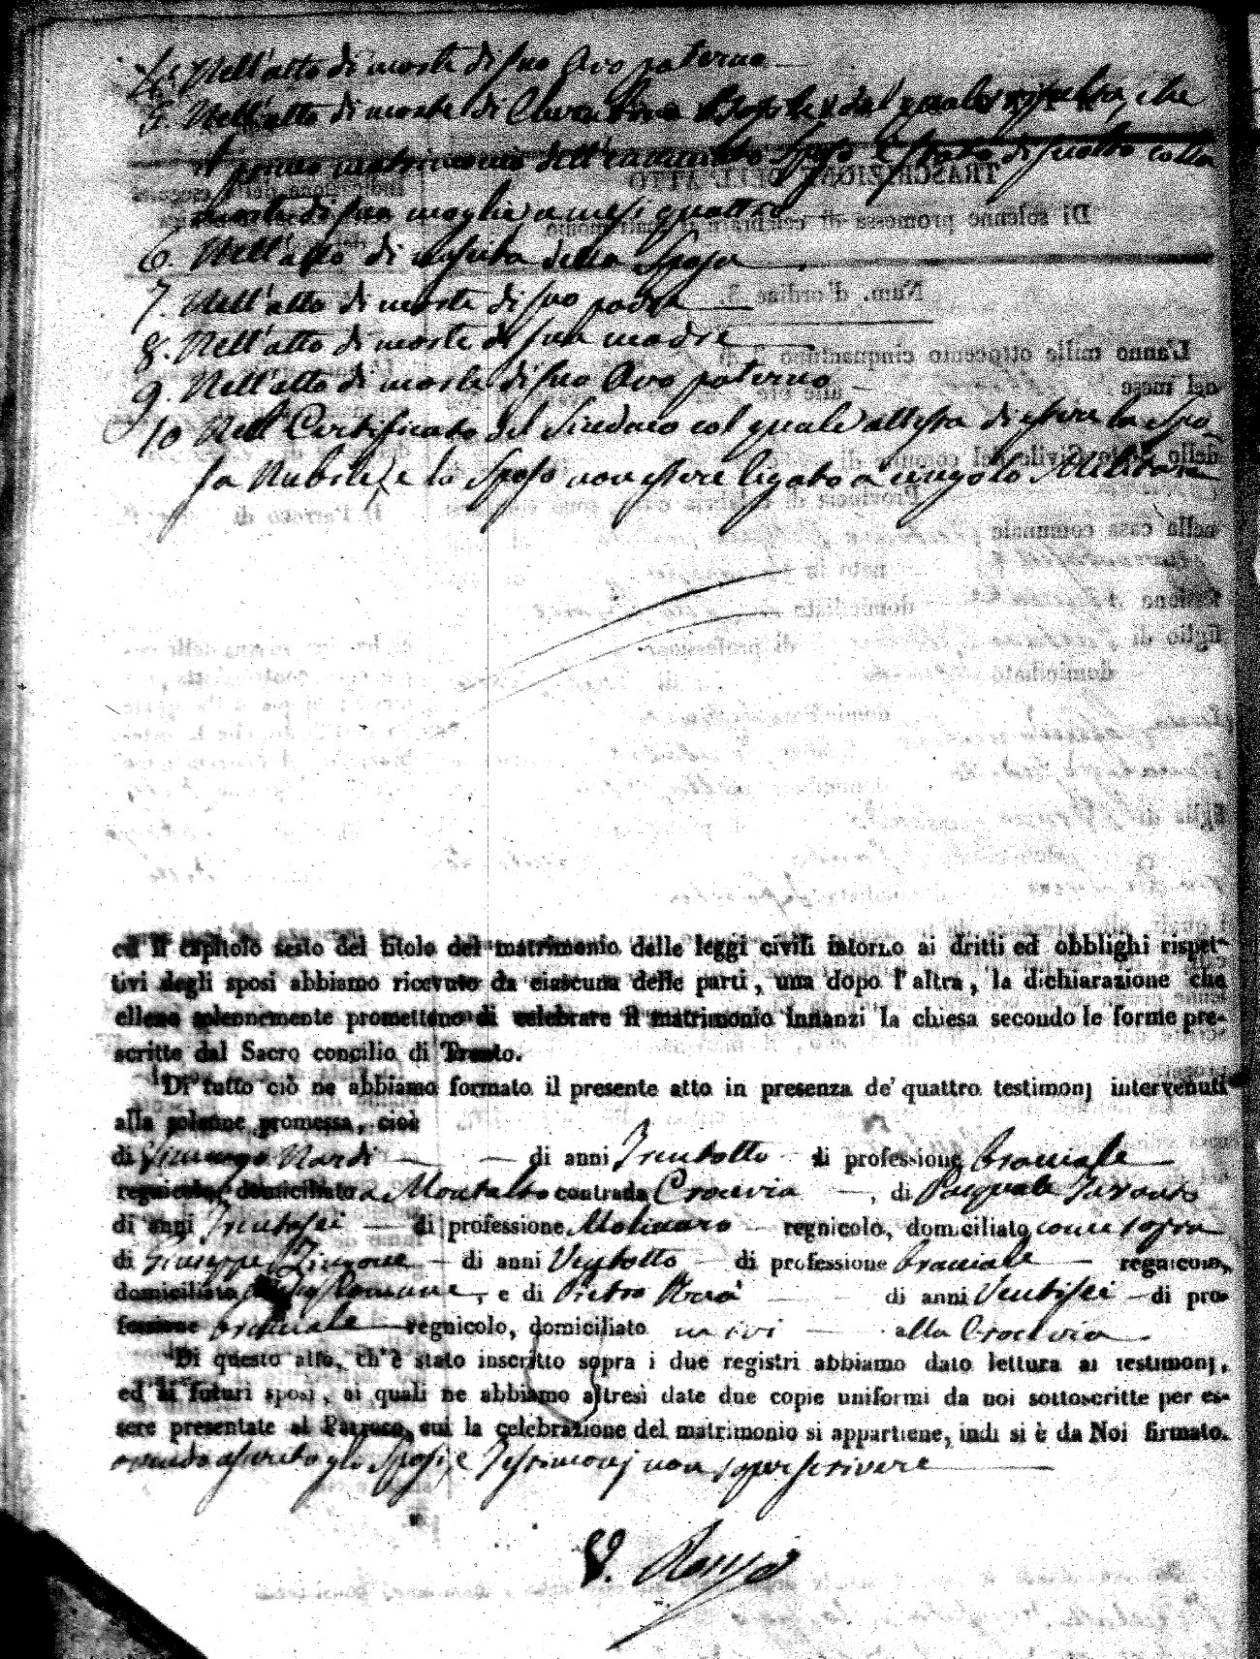 4. Nell'atto di morte di suo Avo paterno
5. Nell'atto di morte di dal quale risulta, che
il primo matrimonio dell'enunciato Sposo è stato disciolto colla
morte di sua moglie a mesi quattro
6. Nell'atto di nascita della Sposa
7. Nell'atto di morte di suo padre
8. Nell'atto di morte di sua madre
9. Nell'atto di morte di suo Avo paterno
10 Nel Certificato del Sindaco col quale attesta di essere la Spo-
sa Nubile, e lo Sposo non essere ligato a cingolo Militare
ed il capitolo sesto del titolo del matrimonio delle leggi civili intorno ai dritti ed obblighi rispet-
tivi degli sposi abbiamo ricevuto da ciascuna delle parti, una dopo l'altra, la dichiarazione che
elleno solennemente promettono di celebrare il matrimonio innanzi la chiesa secondo le forme pre-
scritte dal Sacro concilio di Trento.
Di tutto ciò ne abbiamo formato il presente atto in presenza de' quattro testimonj intervenuti
alla solenne promessa, cioè
di Nardi di anni Trentotto di professione bracciale
regnicolo, domiciliato a Montalto contrada Crocevia, di Pasquale
di anni Trentasei di professione Molinaro regnicolo, domiciliato come sopra
di Giuseppe Zingone di anni Ventotto di professione bracciale regnicolo,
domiciliato, e di Pietro di anni Ventisei di pro-
fessione bracciale regnicolo, domiciliato in ivi alla Crocevia
Di questo atto, ch'è stato inscritto sopra i due registri abbiamo dato lettura ai testimonj,
ed ai futuri sposi, ai quali ne abbiamo altresì date due copie uniformi da noi sottoscritte per es-
sere presentate al Parroco, cui la celebrazione del matrimonio si appartiene, indi si è da Noi firmato.
avendo asserito gli Sposi, e Testimonj non saper scrivere